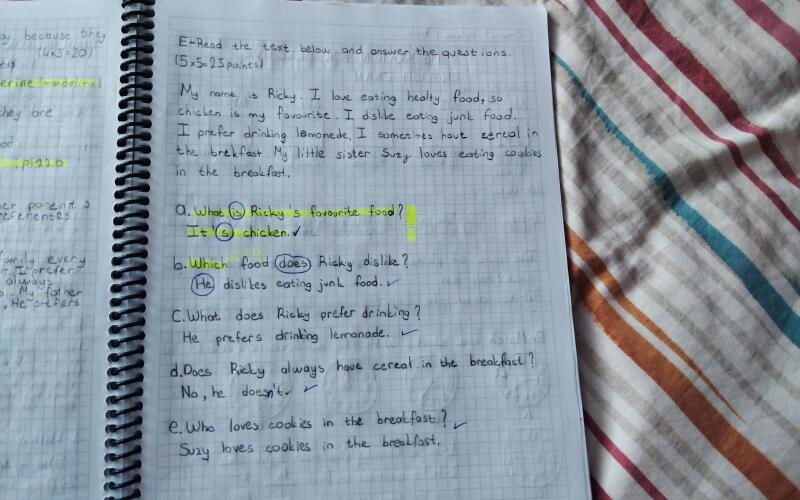 ay because they
(4x5=20)
erine (mandalina)
hey are
p1220
her parent s
eferentes
family every
r I prefer
always
s. My father
. He prefers
E-Read the text below and answer the questions.
(5x5=25points)
My name is Ricky. I love eating healty food, so
chicken is my favourite. I dislike eating junk food.
I prefer drinking lemonede. I sometimes have cereal in
the brekfast My little sister Suzy loves eating cookies
in the breakfast.
a. What is Ricky's favourite food?
It's chicken.✓
b. Which food does Ricky dislike?
He dislikes eating junk food.✓
C. What does Ricky prefer drinking?
He prefers drinking lemonade. ✓
d. Does Ricky always have cereal in the breakfast?
No, he doesn't. ✓
e. Who loves cookies in the breakfast? ✓
Suzy loves cookies in the breakfast.